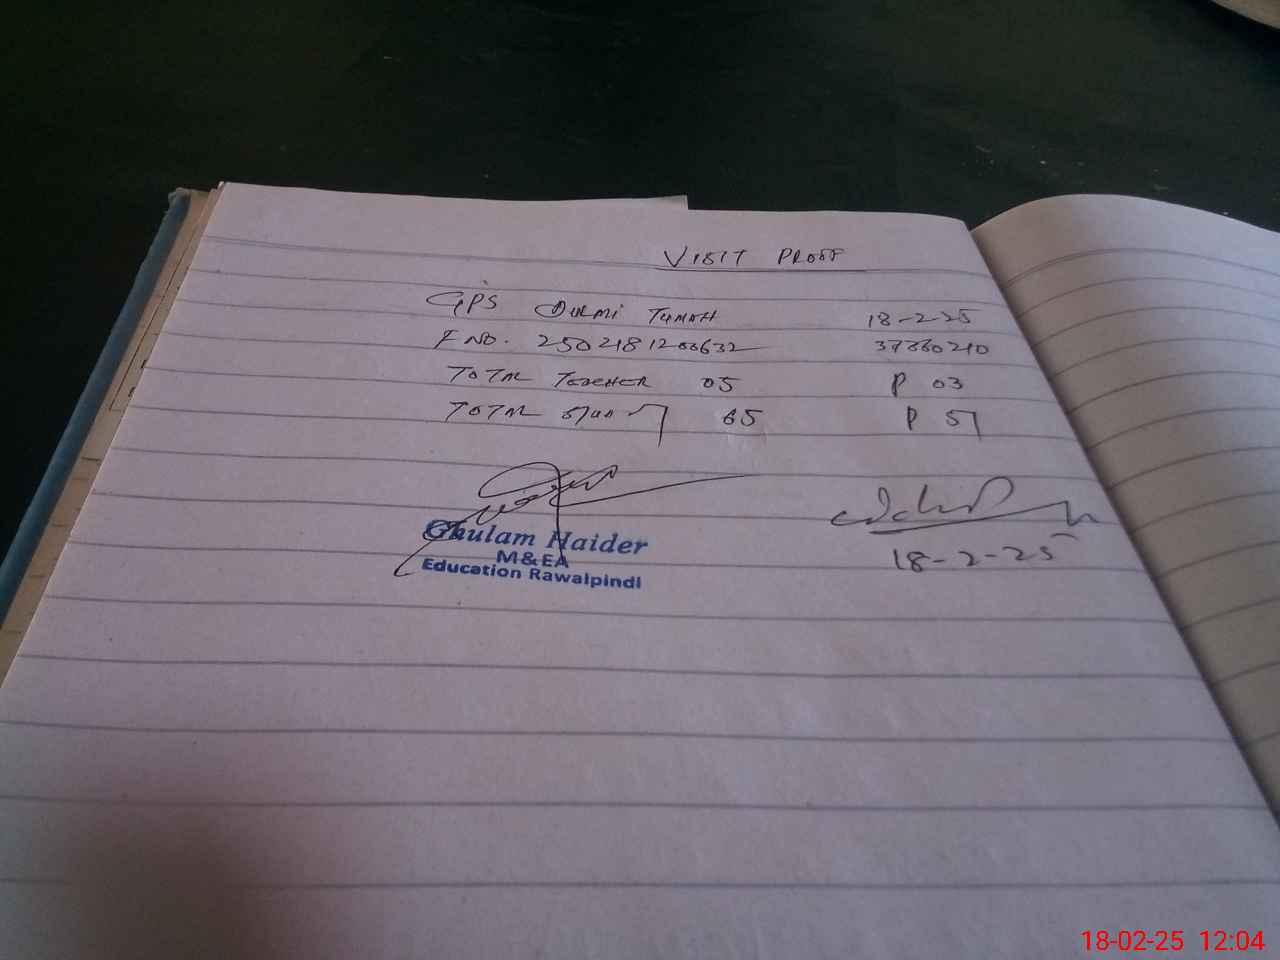 VISIT PROOF
GPS TUMAH 18-2-25
F NO. 2502181200632 37360210
TOTAL TEACHER 05 P 03
TOTAL 65 P 51
Ghulam Haider
M&EA
Education Rawalpindi
18-2-25
18-02-25 12:04